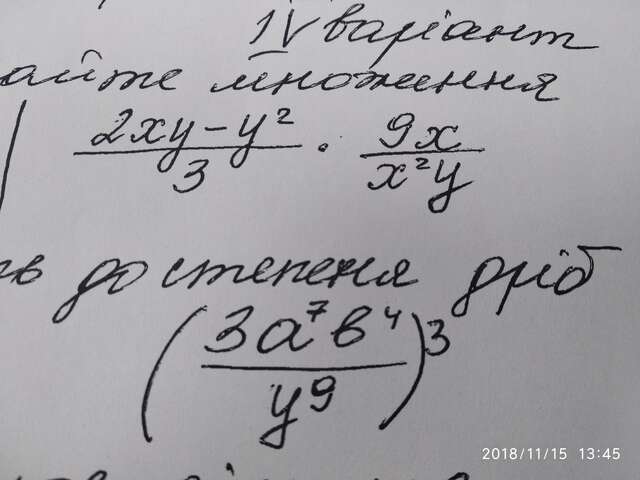 IV варіант
айте множення
(2xy - y²)/3 · 9x/(x²y)
до степеня дріб
(3a⁷b⁴/y⁹)³
2018/11/15 13:45